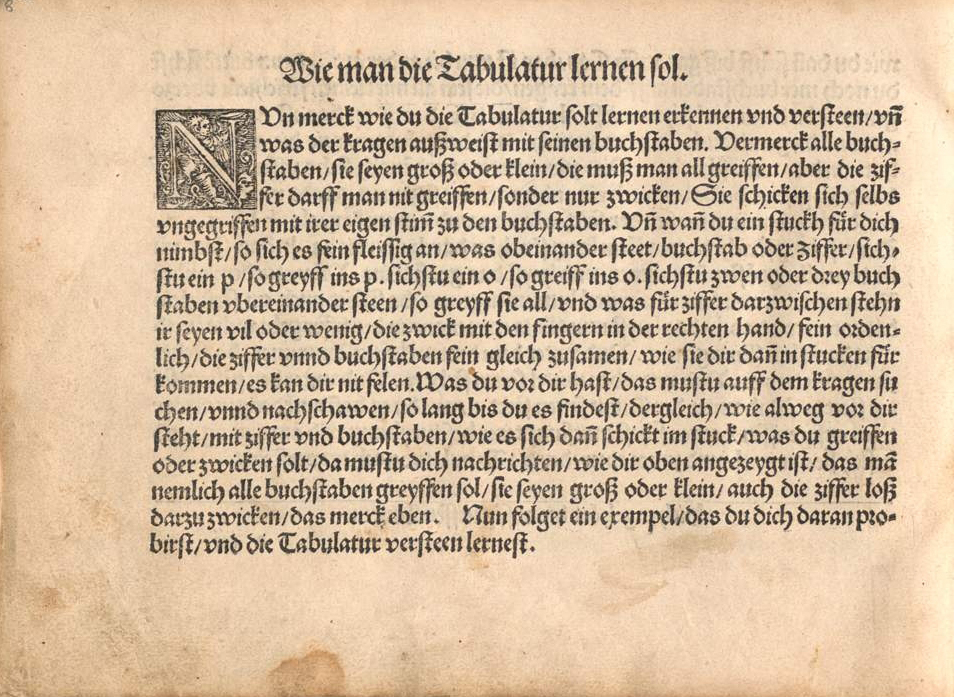 8
Wie man die Tabulatur lernen sol.
NUn merck wie du die Tabulatur solt lernen erkennen vnd versteen/vñ
was der kragen außweist mit seinen buchstaben. Vermerck alle buch⸗
staben/sie seyen groß oder klein/die muß man all greiffen/aber die zif⸗
fer darff man nit greiffen/sonder nur zwicken/Sie schicken sich selbs
vngegriffen mit irer eigen stim̃ zu den buchstaben. Vñ wañ du ein stuckh für dich
nimbst/so sich es fein fleissig an/was obeinander steet/buchstab oder Ziffer/sich⸗
stu ein p /so greyff ins p. sichstu ein o /so greiff ins o. sichstu zwen oder drey buch
staben vbereinander steen /so greyff sie all/vnd was für ziffer darzwischen stehn
ir seyen vil oder wenig/die zwick mit den fingern in der rechten hand/ fein orden⸗
lich/die ziffer vnnd buchstaben fein gleich zusamen/ wie sie dir dañ in stucken für
kommen/es kan dir nit felen.Was du vor dir hast/das mustu auff dem kragen su
chen/vnnd nachschawen/so lang bis du es findest/dergleich/wie alweg vor dir
steht/mit ziffer vnd buchstaben/wie es sich dañ schickt im stuck/was du greiffen
oder zwicken solt/da mustu dich nachrichten/wie dir oben angezeygt ist/ das mã
nemlich alle buchstaben greyffen sol/sie seyen groß oder klein/ auch die ziffer loß
darzu zwicken/das merck eben. Nun folget ein exempel/das du dich daran pro⸗
birst/vnd die Tabulatur versteen lernest.